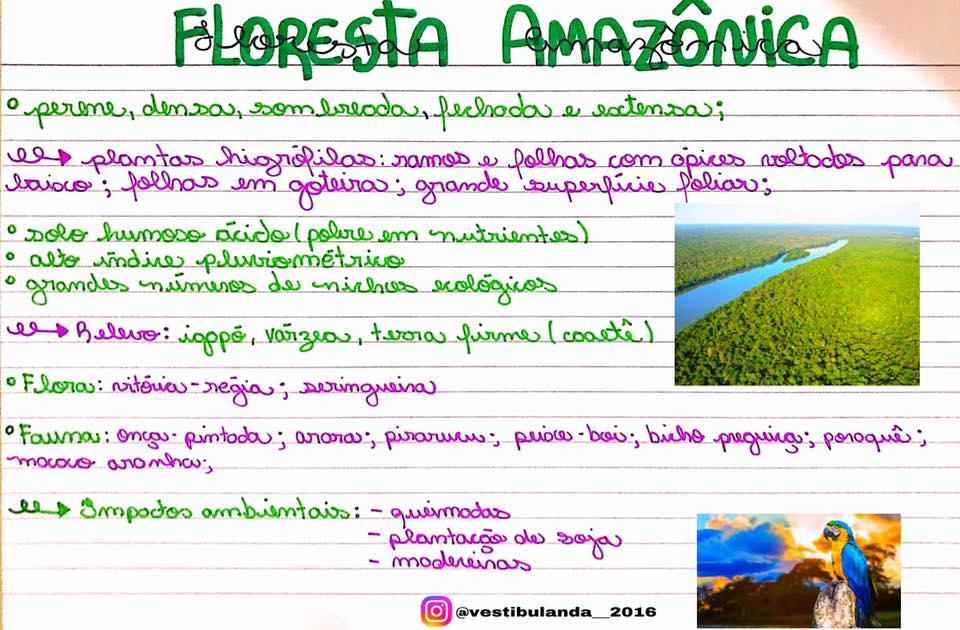 FLORESTA AMAZÔNICA
Floresta Amazônica
° perene, densa, sombreada, fechada e extensa;
plantas higrófilas: ramos e folhas com ápices voltados para
baixo; folhas em goteira; grande superfície foliar;
° solo humoso ácido (pobre em nutrientes)
° alto índice pluviométrico
° grandes números de nichos ecológicos
Relevo: igapó, várzea, terra firme (caaetê)
° Flora: vitória-régia; seringueira
° Fauna: onça-pintada; arara; pirarucu; peixe-boi; bicho preguiça; poraquê;
macaco aranha;
Impactos ambientais: - queimadas
- plantação de soja
- madeireiras
@vestibulanda__2016